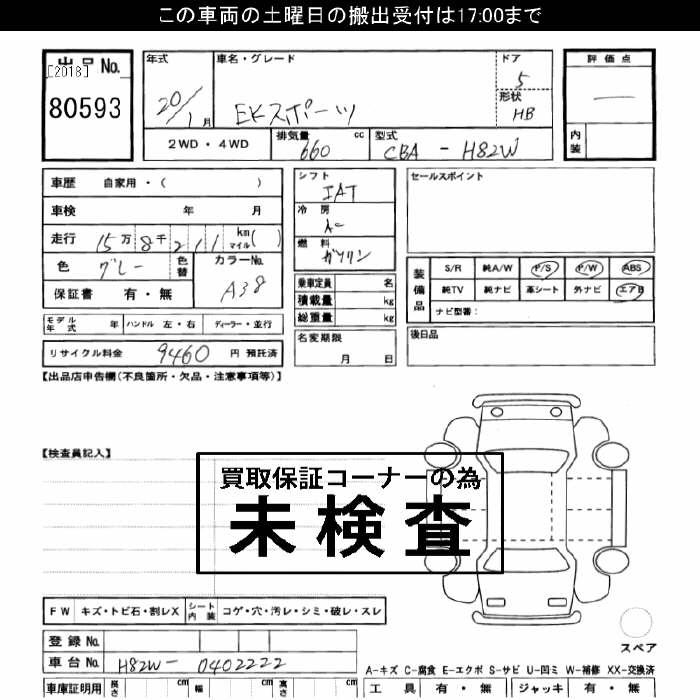 この車両の土曜日の搬出受付は17:00まで
出品No.
[2018]
80593
年式
20/1月
車名・グレード
EKスポーツ
ドア
5
形状
HB
評価点
—
内装
2WD・4WD
排気量
660 cc
型式
CBA - H82W
車歴 自家用・( )
車検 年 月
走行 15万8千211 km マイル( )
色 グレー 色替
カラーNo. A38
保証書 有・無
シフト
IAT
冷房
燃料
ガソリン
セールスポイント
装備品
S/R 純A/W P/S P/W ABS
純TV 純ナビ 革シート 外ナビ エアB
ナビ型番:
乗車定員 名
積載量 kg
総重量 kg
モデル年式 年 ハンドル 左・右 ディーラー・並行
名変期限
月 日
後日品
リサイクル料金 9460 円 預託済
【出品店申告欄(不良箇所・欠品・注意事項等)】
【検査員記入】
買取保証コーナーの為
未検査
FW キズ・トビ石・割レX シート内装 コゲ・穴・汚レ・シミ・破レ・スレ
登録No.
車台No. H82W- 0402222
スペア
A-キズ C-腐食 E-エクボ S-サビ U-凹ミ W-補修 XX-交換済
車庫証明用 長さ cm 幅 cm 高さ cm
工具 有・無 ジャッキ 有・無